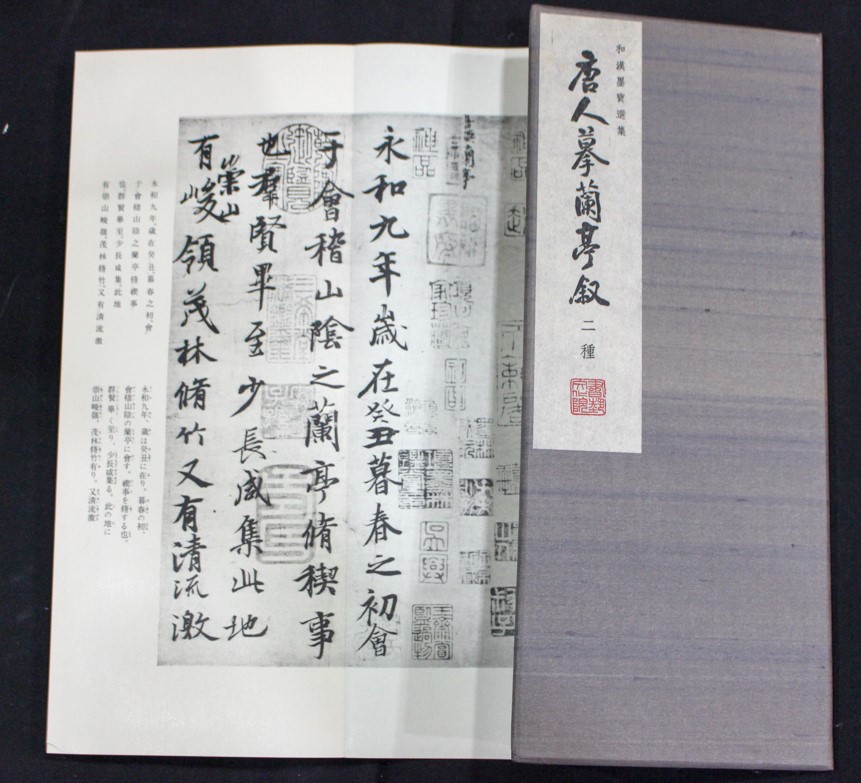 和漢墨寶選集
唐人摹蘭亭叙
二種
永和九年歲在癸丑暮春之初會
于會稽山陰之蘭亭脩稧事
也羣賢畢至少長咸集此地
有崇山峻領茂林脩竹又有清流激
永和九年、歲在癸丑、暮春之初、會
于會稽山陰之蘭亭、脩稧事
也、群賢畢至、少長咸集、此地
有崇山峻嶺、茂林脩竹、又有清流激
永和九年、歲は癸丑に在り、暮春の初、
會稽山陰の蘭亭に會す。稧事を脩する也。
群賢畢く至り、少長咸集る。此の地に
崇山峻嶺、茂林脩竹有り、又清流激